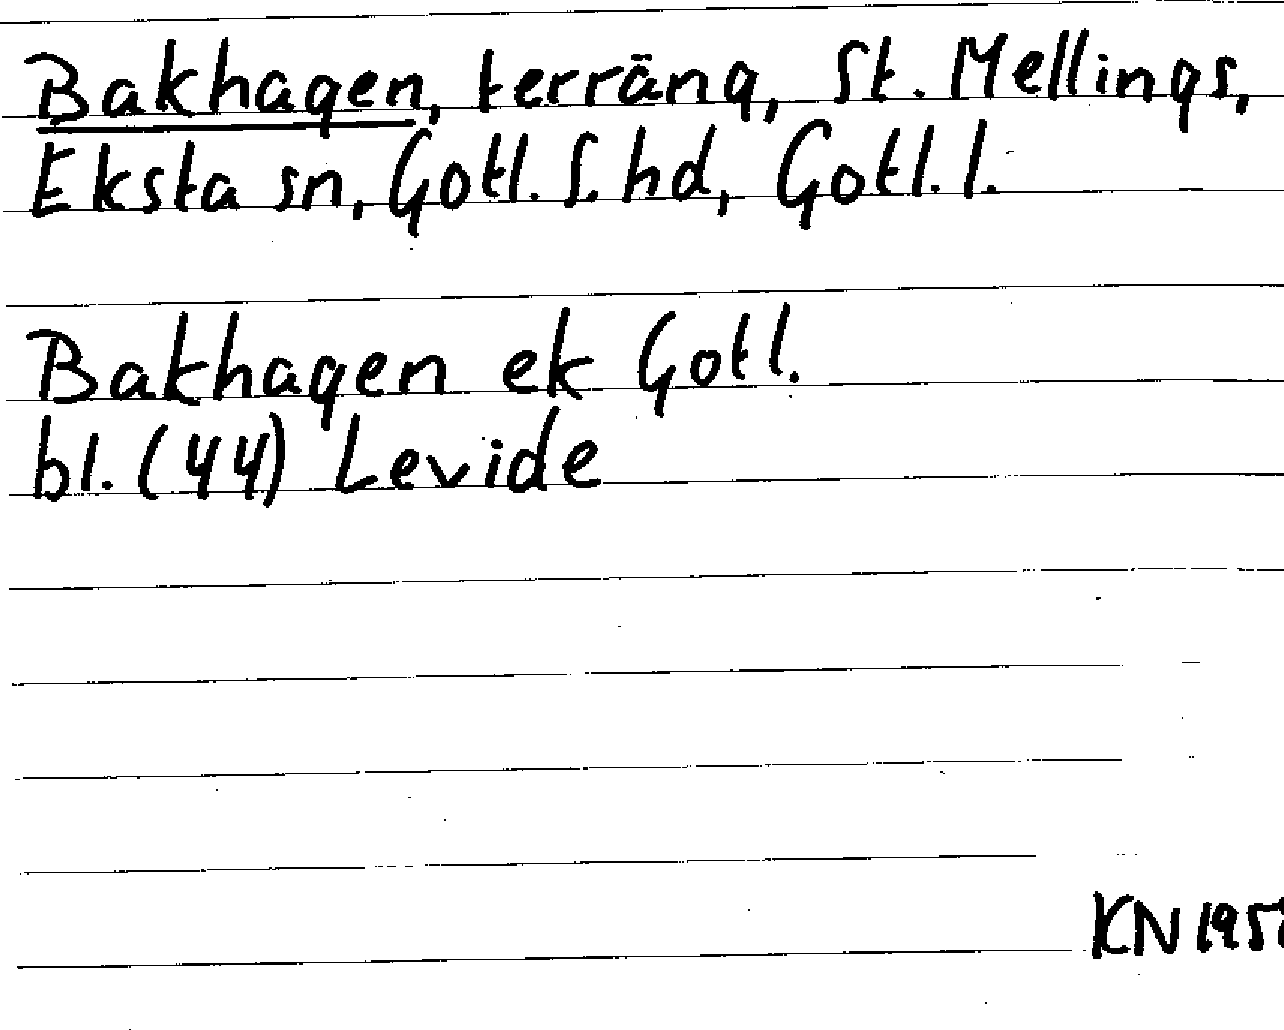 Bakhagen, terräng, St. Mellings,
Eksta sn, Gotl. S. hd, Gotl. l.
Bakhagen ek Gotl.
bl. (44) Levide
KN